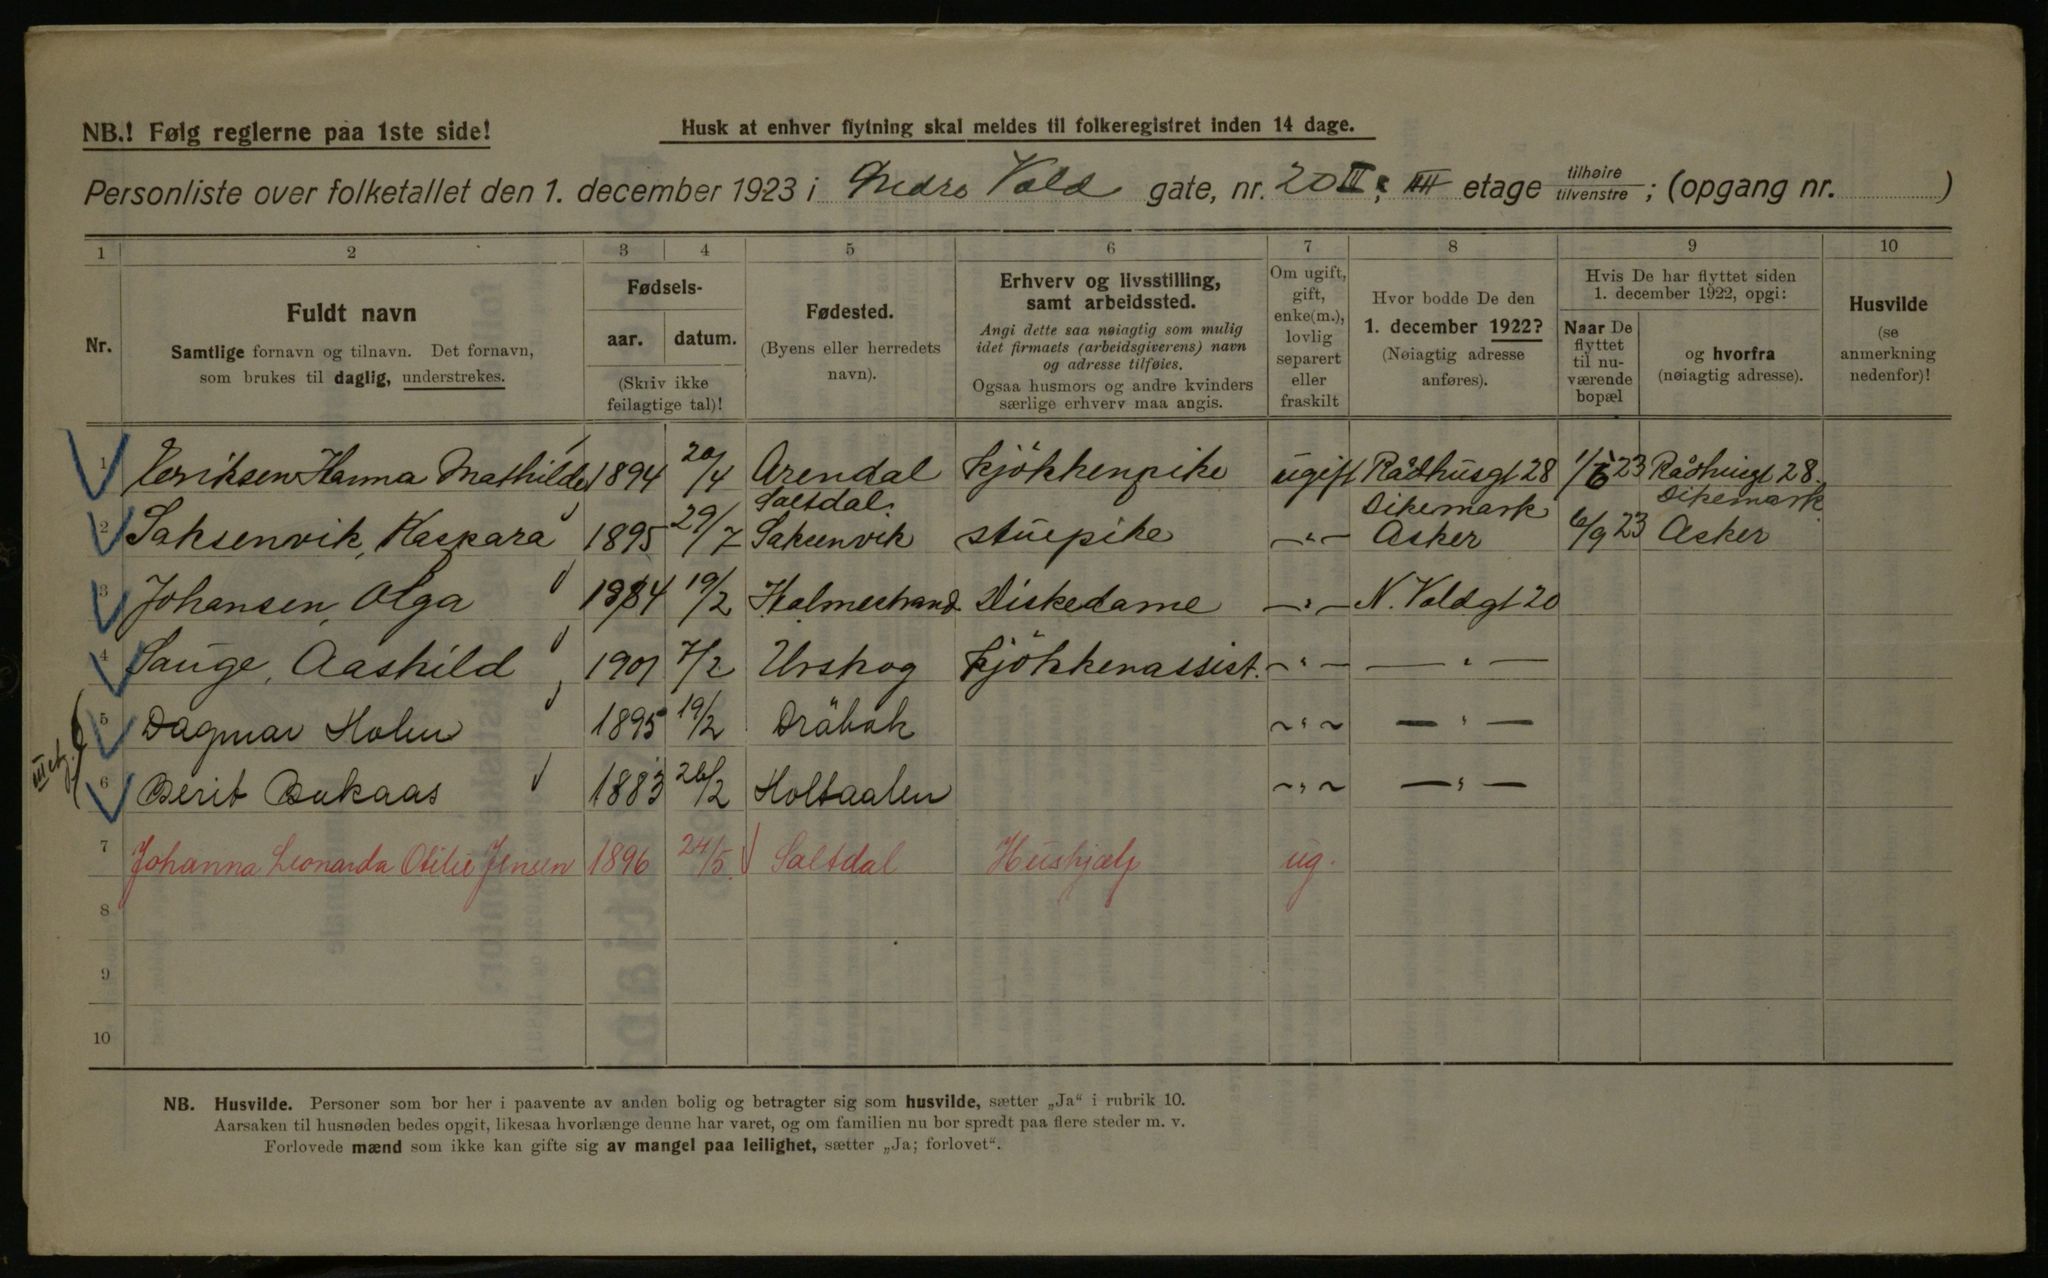 NB.! Følg reglerne paa 1ste side!
Husk at enhver flytning skal meldes til folkeregistret inden 14 dage.
Personliste over folketallet den 1. december 1923 i Nedre Vold gate, nr. 20 III & IIII etage tilhøire tilvenstre ; (opgang nr. )
1 2 3 4 5 6 7 8 9 10
Nr.
Fuldt navn
Samtlige fornavn og tilnavn. Det fornavn,
som brukes til daglig, understrekes.
Fødsels-
aar. datum.
(Skriv ikke
feilagtige tal)!
Fødested.
(Byens eller herredets
navn).
Erhverv og livsstilling,
samt arbeidssted.
Angi dette saa nøiagtig som mulig
idet firmaets (arbeidsgiverens) navn
og adresse tilføies.
Ogsaa husmors og andre kvinders
særlige erhverv maa angis.
Om ugift,
gift,
enke(m.),
lovlig
separert
eller
fraskilt
Hvor bodde De den
1. december 1922?
(Nøiagtig adresse
anføres).
Hvis De har flyttet siden
1. december 1922, opgi:
Naar De
flyttet
til nu-
værende
bopæl
og hvorfra
(nøiagtig adresse).
Husvilde
(se
anmerkning
nedenfor)!
1 Eeriksen Hanna Mathilde 1894 20/4 Arendal kjökkenpike ugift Rådhusgt 28 1/6 23 Rådhusgt 28.
Saltdal Dikemark Dikemark
2 Saksenvik, Kaspara 1895 29/7 Saksenvik stuepike —"— Asker 6/9 23 Asker
3 Johansen, Olga 1884 19/2 Holmestrand Diskedame —"— N. Voldgt 20
4 Sauge, Aashild 1901 7/2 Urskog kjökkenassist. —"— —"—
5 Dagmar Holen 1895 19/2 Dröbak ~"~ —"—
III etg.
6 Berit Bukaas 1883 26/2 Holtaalen ~"~ —"—
7 Johanna Leonarda Otilie Jensen 1896 24/5. Saltdal Hushjælp ug.
8
9
10
NB. Husvilde. Personer som bor her i paavente av anden bolig og betragter sig som husvilde, sætter „Ja“ i rubrik 10.
Aarsaken til husnøden bedes opgit, likesaa hvorlænge denne har varet, og om familien nu bor spredt paa flere steder m. v.
Forlovede mænd som ikke kan gifte sig av mangel paa leilighet, sætter „Ja; forlovet“.